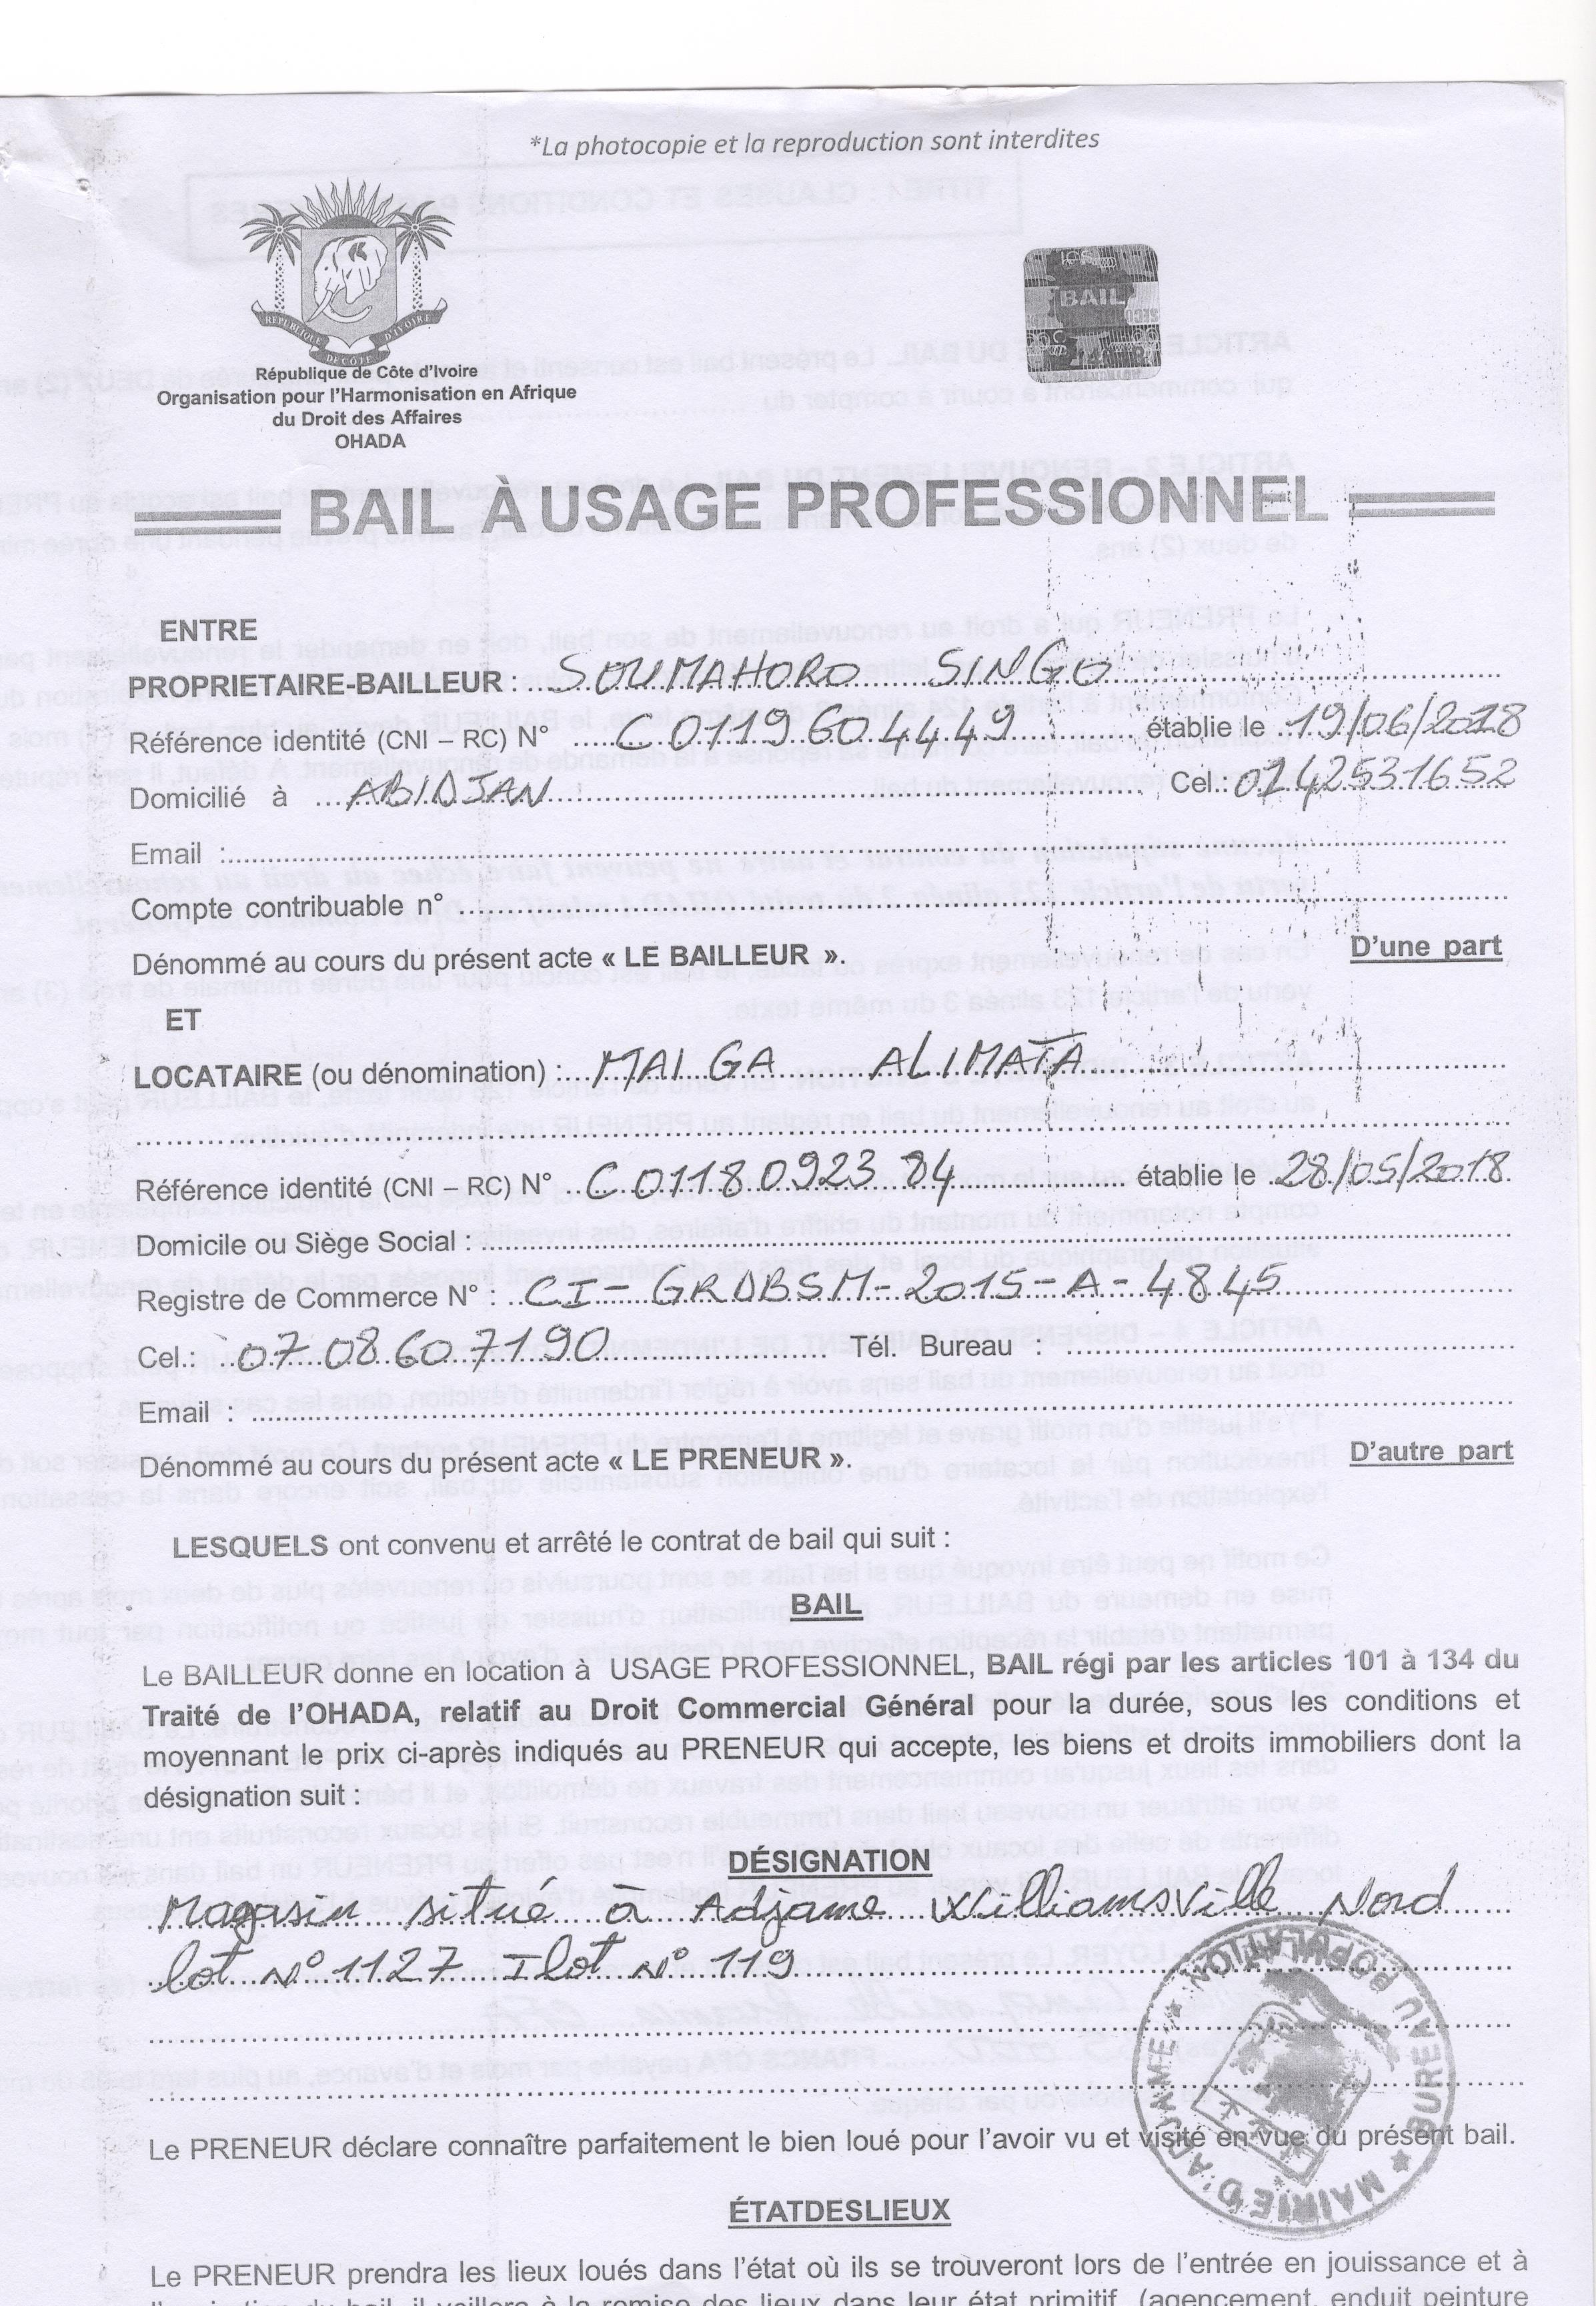 *La photocopie et la reproduction sont interdites
RÉPUBLIQUE DE CÔTE D'IVOIRE
BAIL
République de Côte d'Ivoire
Organisation pour l'Harmonisation en Afrique
du Droit des Affaires
OHADA
BAIL À USAGE PROFESSIONNEL
ENTRE
PROPRIETAIRE-BAILLEUR : SOUMAHORO SINGO
Référence identité (CNI – RC) N° C 0119 60 4449 établie le 19/06/2018
Domicilié à ABIDJAN Cel.: 0142531652
Email :
Compte contribuable n°
Dénommé au cours du présent acte « LE BAILLEUR ». D'une part
ET
LOCATAIRE (ou dénomination) : MAIGA ALIMATA
Référence identité (CNI – RC) N° C 01180923 84 établie le 28/05/2018
Domicile ou Siège Social :
Registre de Commerce N° : CI- GRDBSM- 2015-A- 4845
Cel.: 07 08 60 71 90 Tél. Bureau :
Email :
Dénommé au cours du présent acte « LE PRENEUR ». D'autre part
LESQUELS ont convenu et arrêté le contrat de bail qui suit :
BAIL
Le BAILLEUR donne en location à USAGE PROFESSIONNEL, BAIL régi par les articles 101 à 134 du
Traité de l'OHADA, relatif au Droit Commercial Général pour la durée, sous les conditions et
moyennant le prix ci-après indiqués au PRENEUR qui accepte, les biens et droits immobiliers dont la
désignation suit :
DÉSIGNATION
Magasin situé à Adjame Williamsville Nord
lot N° 1127 Ilot N° 119
MAIRIE D'ADJAME ★ BUREAU POPULATION
Le PRENEUR déclare connaître parfaitement le bien loué pour l'avoir vu et visité en vue du présent bail.
ÉTATDESLIEUX
Le PRENEUR prendra les lieux loués dans l'état où ils se trouveront lors de l'entrée en jouissance et à
il veillera à la remise des lieux dans leur état primitif (agencement, enduit peinture